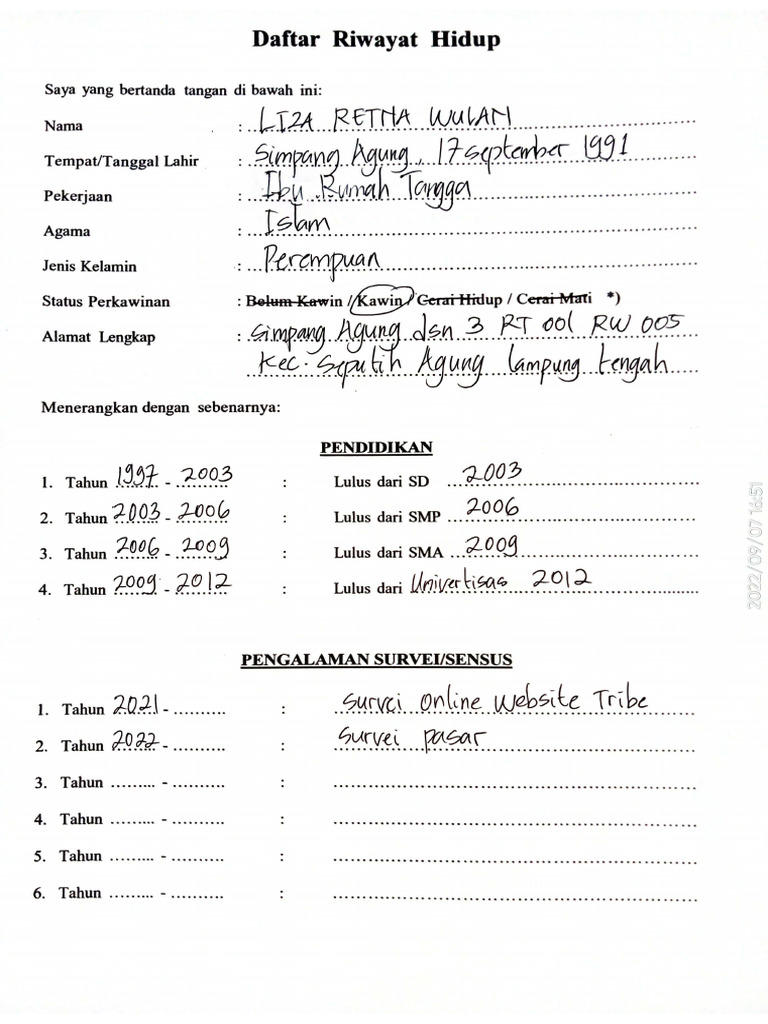 Daftar Riwayat Hidup
Saya yang bertanda tangan di bawah ini:
Nama : LIZA RETNA WULAN
Tempat/Tanggal Lahir : Simpang Agung, 17 september 1991
Pekerjaan : Ibu Rumah Tangga
Agama : Islam
Jenis Kelamin : Perempuan
Status Perkawinan : Belum Kawin / Kawin / Cerai Hidup / Cerai Mati *)
Alamat Lengkap : Simpang Agung dsn 3 RT 001 RW 005
Kec. Seputih Agung lampung tengah
Menerangkan dengan sebenarnya:
PENDIDIKAN
1. Tahun 1997 - 2003 : Lulus dari SD 2003
2. Tahun 2003 - 2006 : Lulus dari SMP 2006
3. Tahun 2006 - 2009 : Lulus dari SMA 2009
4. Tahun 2009 - 2012 : Lulus dari Univertisas 2012
PENGALAMAN SURVEI/SENSUS
1. Tahun 2021 - .......... : Survei Online Website Tribe
2. Tahun 2022 - .......... : Survei pasar
3. Tahun ......... - .......... : ..........
4. Tahun ......... - .......... : ..........
5. Tahun ......... - .......... : ..........
6. Tahun ......... - .......... : ..........
2022/09/07 16:51